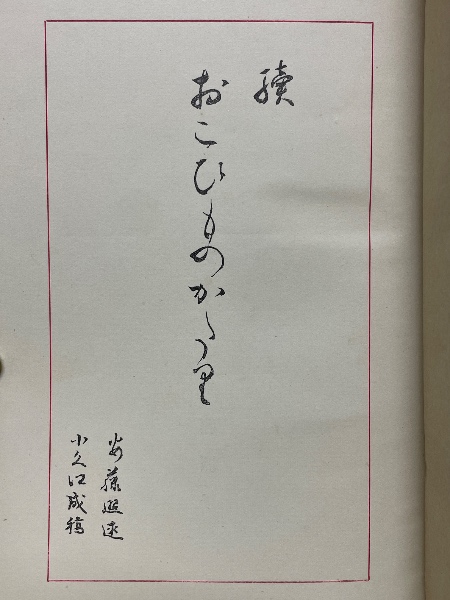 續
おこひものかたり
安藤煕述
小久江成稿